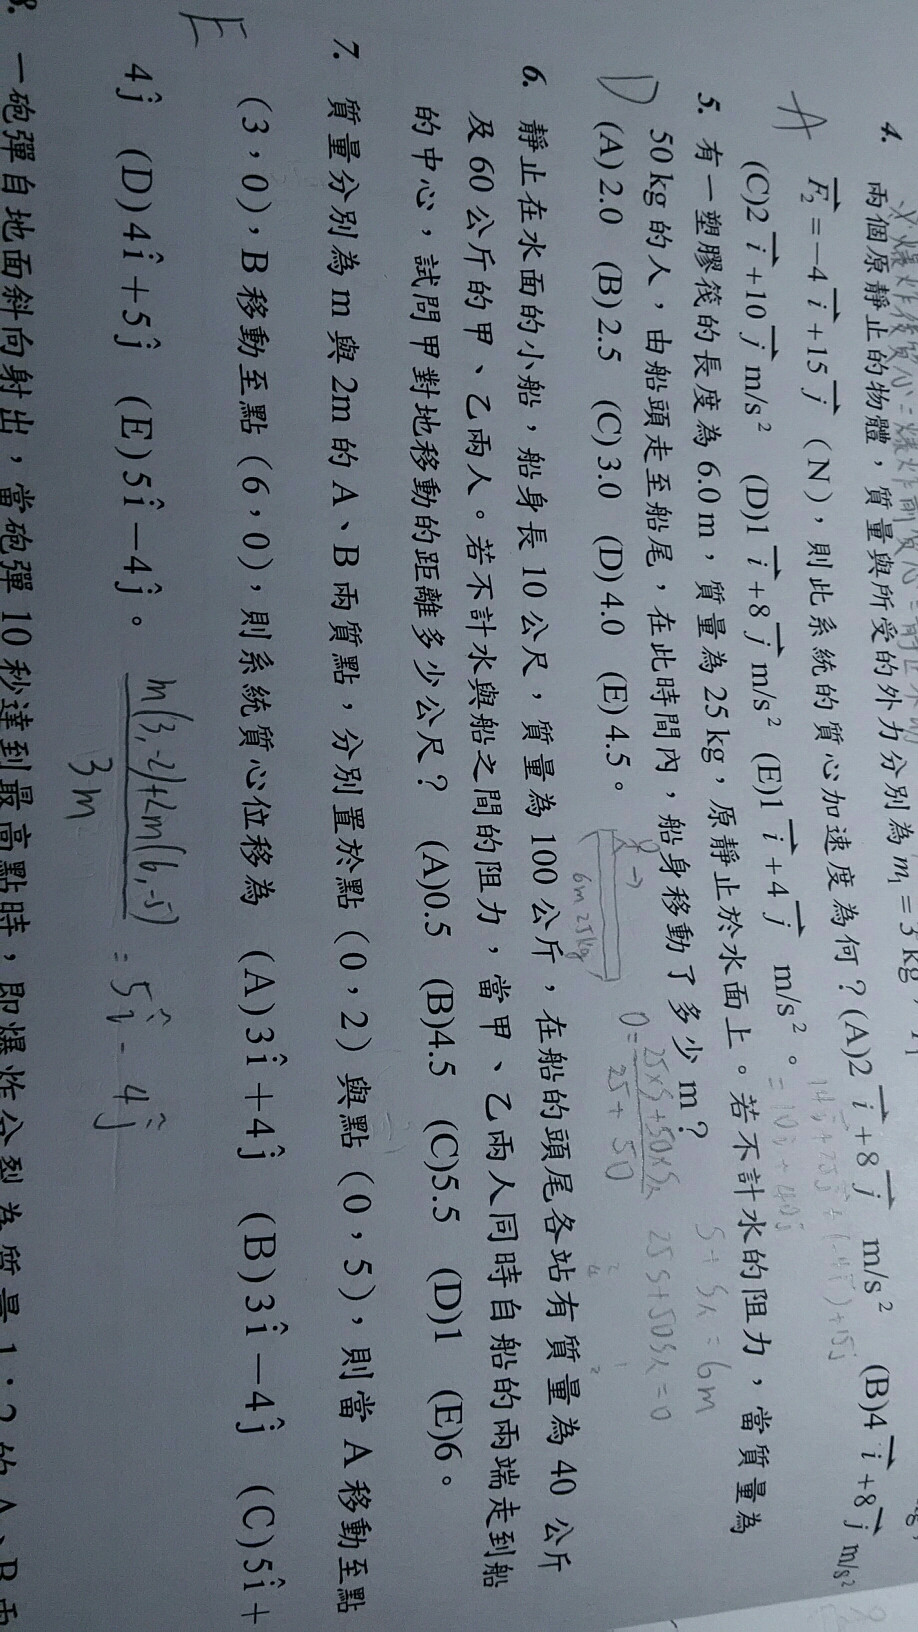 4. 兩個原靜止的物體，質量與所受的外力分別為 m₁ = 3 kg
A
F₂ = −4 i + 15 j （N），則此系統的質心加速度為何？(A)2 i + 8 j m/s² (B)4 i + 8 j m/s²
(C)2 i + 10 j m/s² (D)1 i + 8 j m/s² (E)1 i + 4 j m/s²。
= 10i + 40j
5. 有一塑膠筏的長度為 6.0 m，質量為 25 kg，原靜止於水面上。若不計水的阻力，當質量為
50 kg 的人，由船頭走至船尾，在此時間內，船身移動了多少 m？
D
(A) 2.0 (B) 2.5 (C) 3.0 (D) 4.0 (E) 4.5。
6m 25kg
6. 靜止在水面的小船，船身長 10 公尺，質量為 100 公斤，在船的頭尾各站有質量為 40 公斤
及 60 公斤的甲、乙兩人。若不計水與船之間的阻力，當甲、乙兩人同時自船的兩端走到船
的中心，試問甲對地移動的距離多少公尺？ (A)0.5 (B)4.5 (C)5.5 (D)1 (E)6。
7. 質量分別為 m 與 2m 的 A、B 兩質點，分別置於點（0，2）與點（0，5），則當 A 移動至點
（3，0），B 移動至點（6，0），則系統質心位移為 (A)3î + 4ĵ (B)3î − 4ĵ (C)5î +
E
4ĵ (D)4î + 5ĵ (E)5î − 4ĵ。
m(3,-2)+2m(6,-5)
3m
= 5î - 4ĵ
8. 一砲彈自地面斜向射出，當砲彈 10 秒達到最高點時，即爆炸分裂為質量 1：2 的 A、B 兩